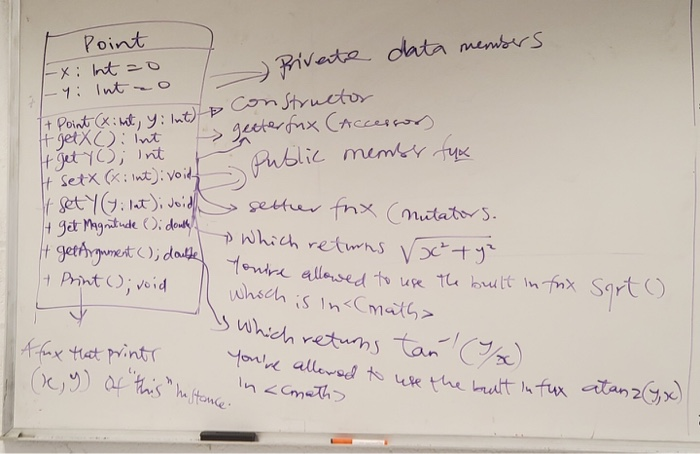 Point
-x: Int = 0
-y: Int = 0
Private data members
+ Point (x: int, y: Int)
constructor
+ getX(): Int
getter fnx (Accessor)
+ getY(); Int
Public member fnx
+ setX (x: int): void
+ setY(y: Int): void
setter fnx (mutators.
+ get Magnitude (): double
which returns √x²+y²
You're allowed to use the built in fnx sqrt()
which is in <cmath>
+ getArgument(); double
which returns tan⁻¹(y/x)
You're allowed to use the built in fnx atan2(y,x)
in <cmath>
+ Print(); void
A fnx that prints
(x, y) of "this" instance.